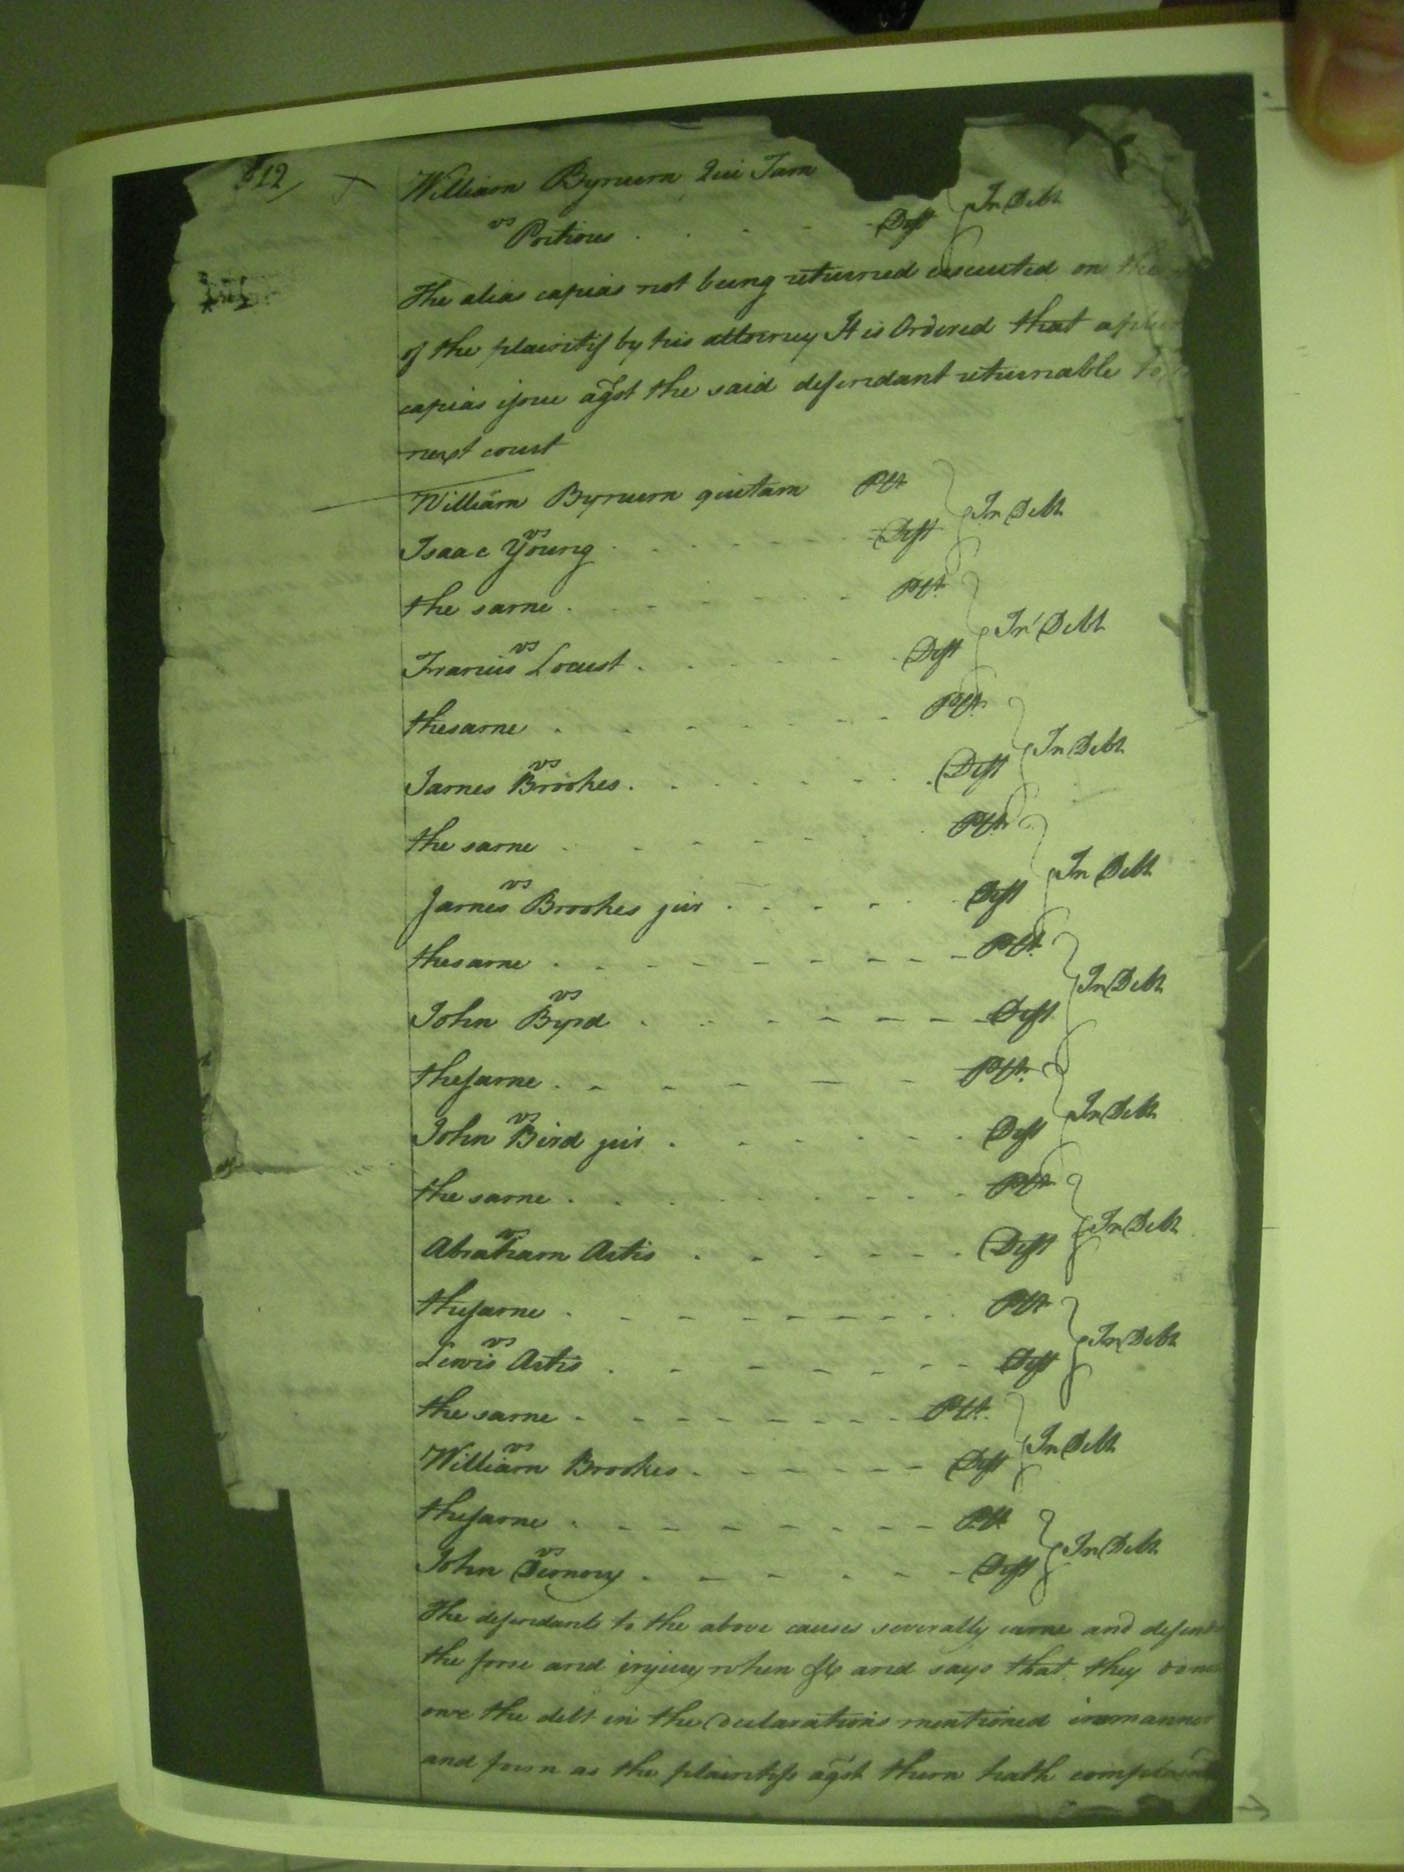 12
William Bynum Qui Tam
vs
Portious . . . . Deft } In Debt
The alias capias not being returned executed on the
of the plaintif by his attorney It is Ordered that a
capias issue agst the said defendant returnable to
next court
William Bynum quitam Plt
vs } In Debt
Isaac Young . . . . . Deft
the same . . . . . . Plt
vs } In Debt
Francis Locust . . . . . Deft
the same . . . . . . Plt
vs } In Debt
James Brookes . . . . . Deft
the same . . . . . . Plt
vs } In Debt
James Brookes jur . . . . . Deft
the same . . . . . . Plt
vs } In Debt
John Byrd . . . . . . Deft
the same . . . . . . Plt
vs } In Debt
John Bird jur . . . . . . Deft
the same . . . . . . Plt
vs } In Debt
Abraham Artis . . . . . Deft
the same . . . . . . Plt
vs } In Debt
Lewis Artis . . . . . . Deft
the same . . . . . . Plt
vs } In Debt
William Brookes . . . . . Deft
the same . . . . . . Plt
vs } In Debt
John . . . . . . Deft
The defendants to the above causes severally came and defend
the force and injury when &c and says that they
owe the debt in the declarations mentioned in manner
and form as the plaintifs agst them hath complained